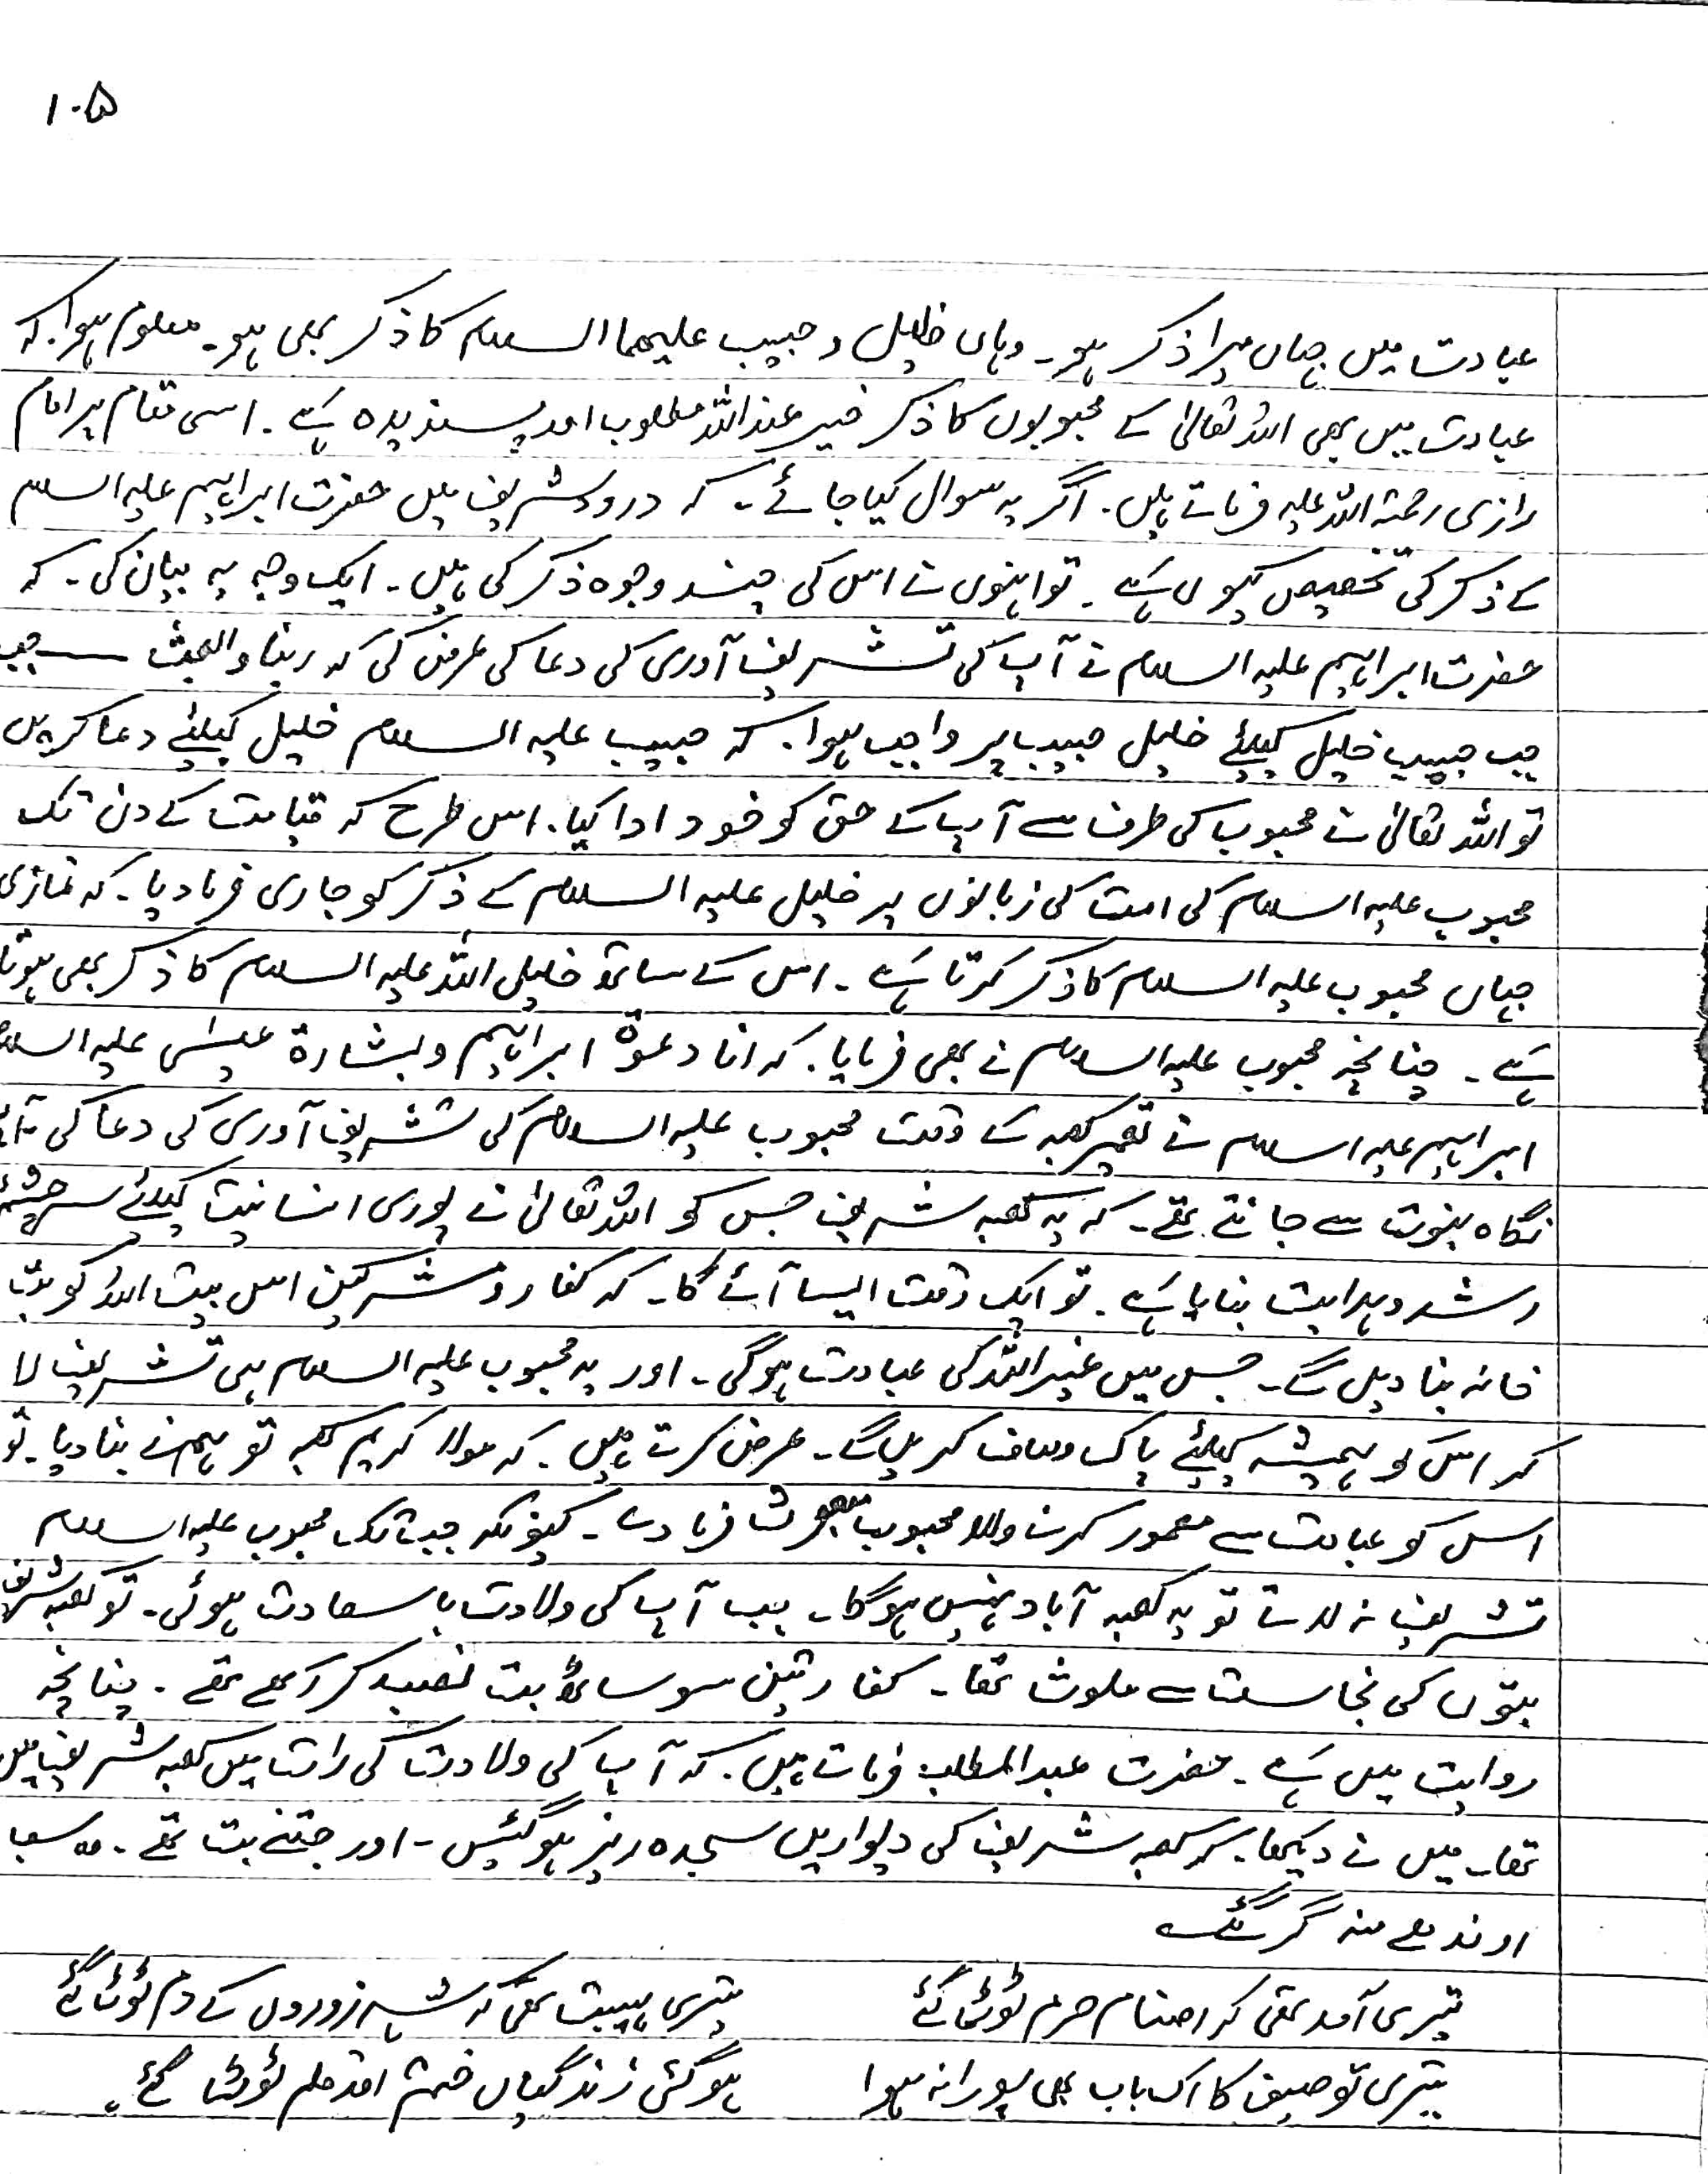 ۱۰۵
عبادت میں جہاں میرا ذکر ہو۔ وہاں خلیل و حبیب علیھما السلام کا ذکر بھی ہو۔ معلوم ہوا۔ کہ
عبادت میں بھی اللہ تعالیٰ کے محبوبوں کا ذکر خیر عنداللہ مطلوب اور پسندیدہ ہے۔ اسی مقام پر امام
رازی رحمۃ اللہ علیہ فرماتے ہیں۔ اگر یہ سوال کیا جائے۔ کہ درود شریف میں حضرت ابراہیم علیہ السلام
کے ذکر کی تخصیص کیوں ہے۔ تو انہوں نے اس کی چند وجوہ ذکر کی ہیں۔ ایک وجہ یہ بیان کی۔ کہ
حضرت ابراہیم علیہ السلام نے آپ کی تشریف آوری کی دعا کی عرض کی کہ ربنا وابعث ــــ جب
جب حبیب خلیل کیلئے خلیل حبیب پر واجب ہوا۔ کہ حبیب علیہ السلام خلیل کیلئے دعا کریں
تو اللہ تعالیٰ نے محبوب کی طرف سے آپ کے حق کو خود ادا کیا۔ اس طرح کہ قیامت کے دن تک
محبوب علیہ السلام کی امت کی زبانوں پر خلیل علیہ السلام کے ذکر کو جاری فرما دیا۔ کہ نمازی
جہاں محبوب علیہ السلام کا ذکر کرتا ہے۔ اس کے ساتھ خلیل اللہ علیہ السلام کا ذکر بھی ہوتا
ہے۔ چنانچہ محبوب علیہ السلام نے بھی فرمایا۔ کہ انا دعوۃ ابراہیم وبشارۃ عیسٰی علیہ السلام
ابراہیم علیہ السلام نے تعمیر کعبہ کے وقت محبوب علیہ السلام کی تشریف آوری کی دعا کی
نگاہ نبوت سے جانتے تھے۔ کہ یہ کعبہ شریف جس کو اللہ تعالیٰ نے پوری انسانیت کیلئے سرچشمۂ
رشد و ہدایت بنایا ہے۔ تو ایک وقت ایسا آئے گا۔ کہ کفار و مشرکین اس بیت اللہ کو بت
خانہ بنا دیں گے۔ جس میں غیر اللہ کی عبادت ہوگی۔ اور یہ محبوب علیہ السلام ہی تشریف لا
کر اس کو ہمیشہ کیلئے پاک و صاف کریں گے۔ عرض کرتے ہیں۔ کہ مولا کریم کعبہ تو ہم نے بنا دیا۔ تو
اس کو عبادت سے معمور کرنے والا محبوب مبعوث فرما دے۔ کیونکہ جب تک محبوب علیہ السلام
تشریف نہ لاتے تو یہ کعبہ آباد نہیں ہوگا۔ جب آپ کی ولادت با سعادت ہوئی۔ تو کعبہ شریف
بتوں کی نجاست سے ملوث تھا۔ کفار تین سو ساٹھ بت نصب کر رکھے تھے۔ چنانچہ
روایت میں ہے۔ حضرت عبدالمطلب فرماتے ہیں۔ کہ آپ کی ولادت کی رات میں کعبہ شریف میں
تھا۔ میں نے دیکھا۔ کہ کعبہ شریف کی دیواریں سجدہ ریز ہوگئیں۔ اور جتنے بت تھے۔ وہ سب
اوندھے منہ گر گئے
تیری آمد تھی کہ اصنام حرم ٹوٹ گئے تیری ہیبت تھی کہ شہ زوروں کے دم ٹوٹ گئے
تیری توصیف کا اک باب بھی پورا نہ ہوا ہوگئی زندگیاں ختم اور قلم ٹوٹ گئے۔